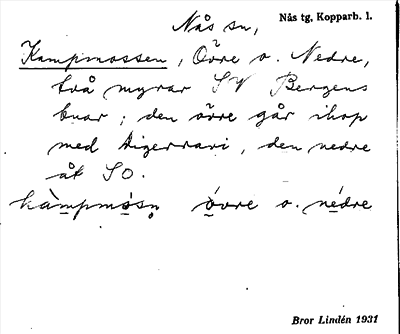 Nås sn,
Nås tg, Kopparb. l.
Kampmossen, Övre o. Nedre,
två myrar SV Bergens
buar; den övre går ihop
med Aigerravi, den nedre
åt SO.
kàmpmósn óvre o. nédre
Bror Lindén 1931